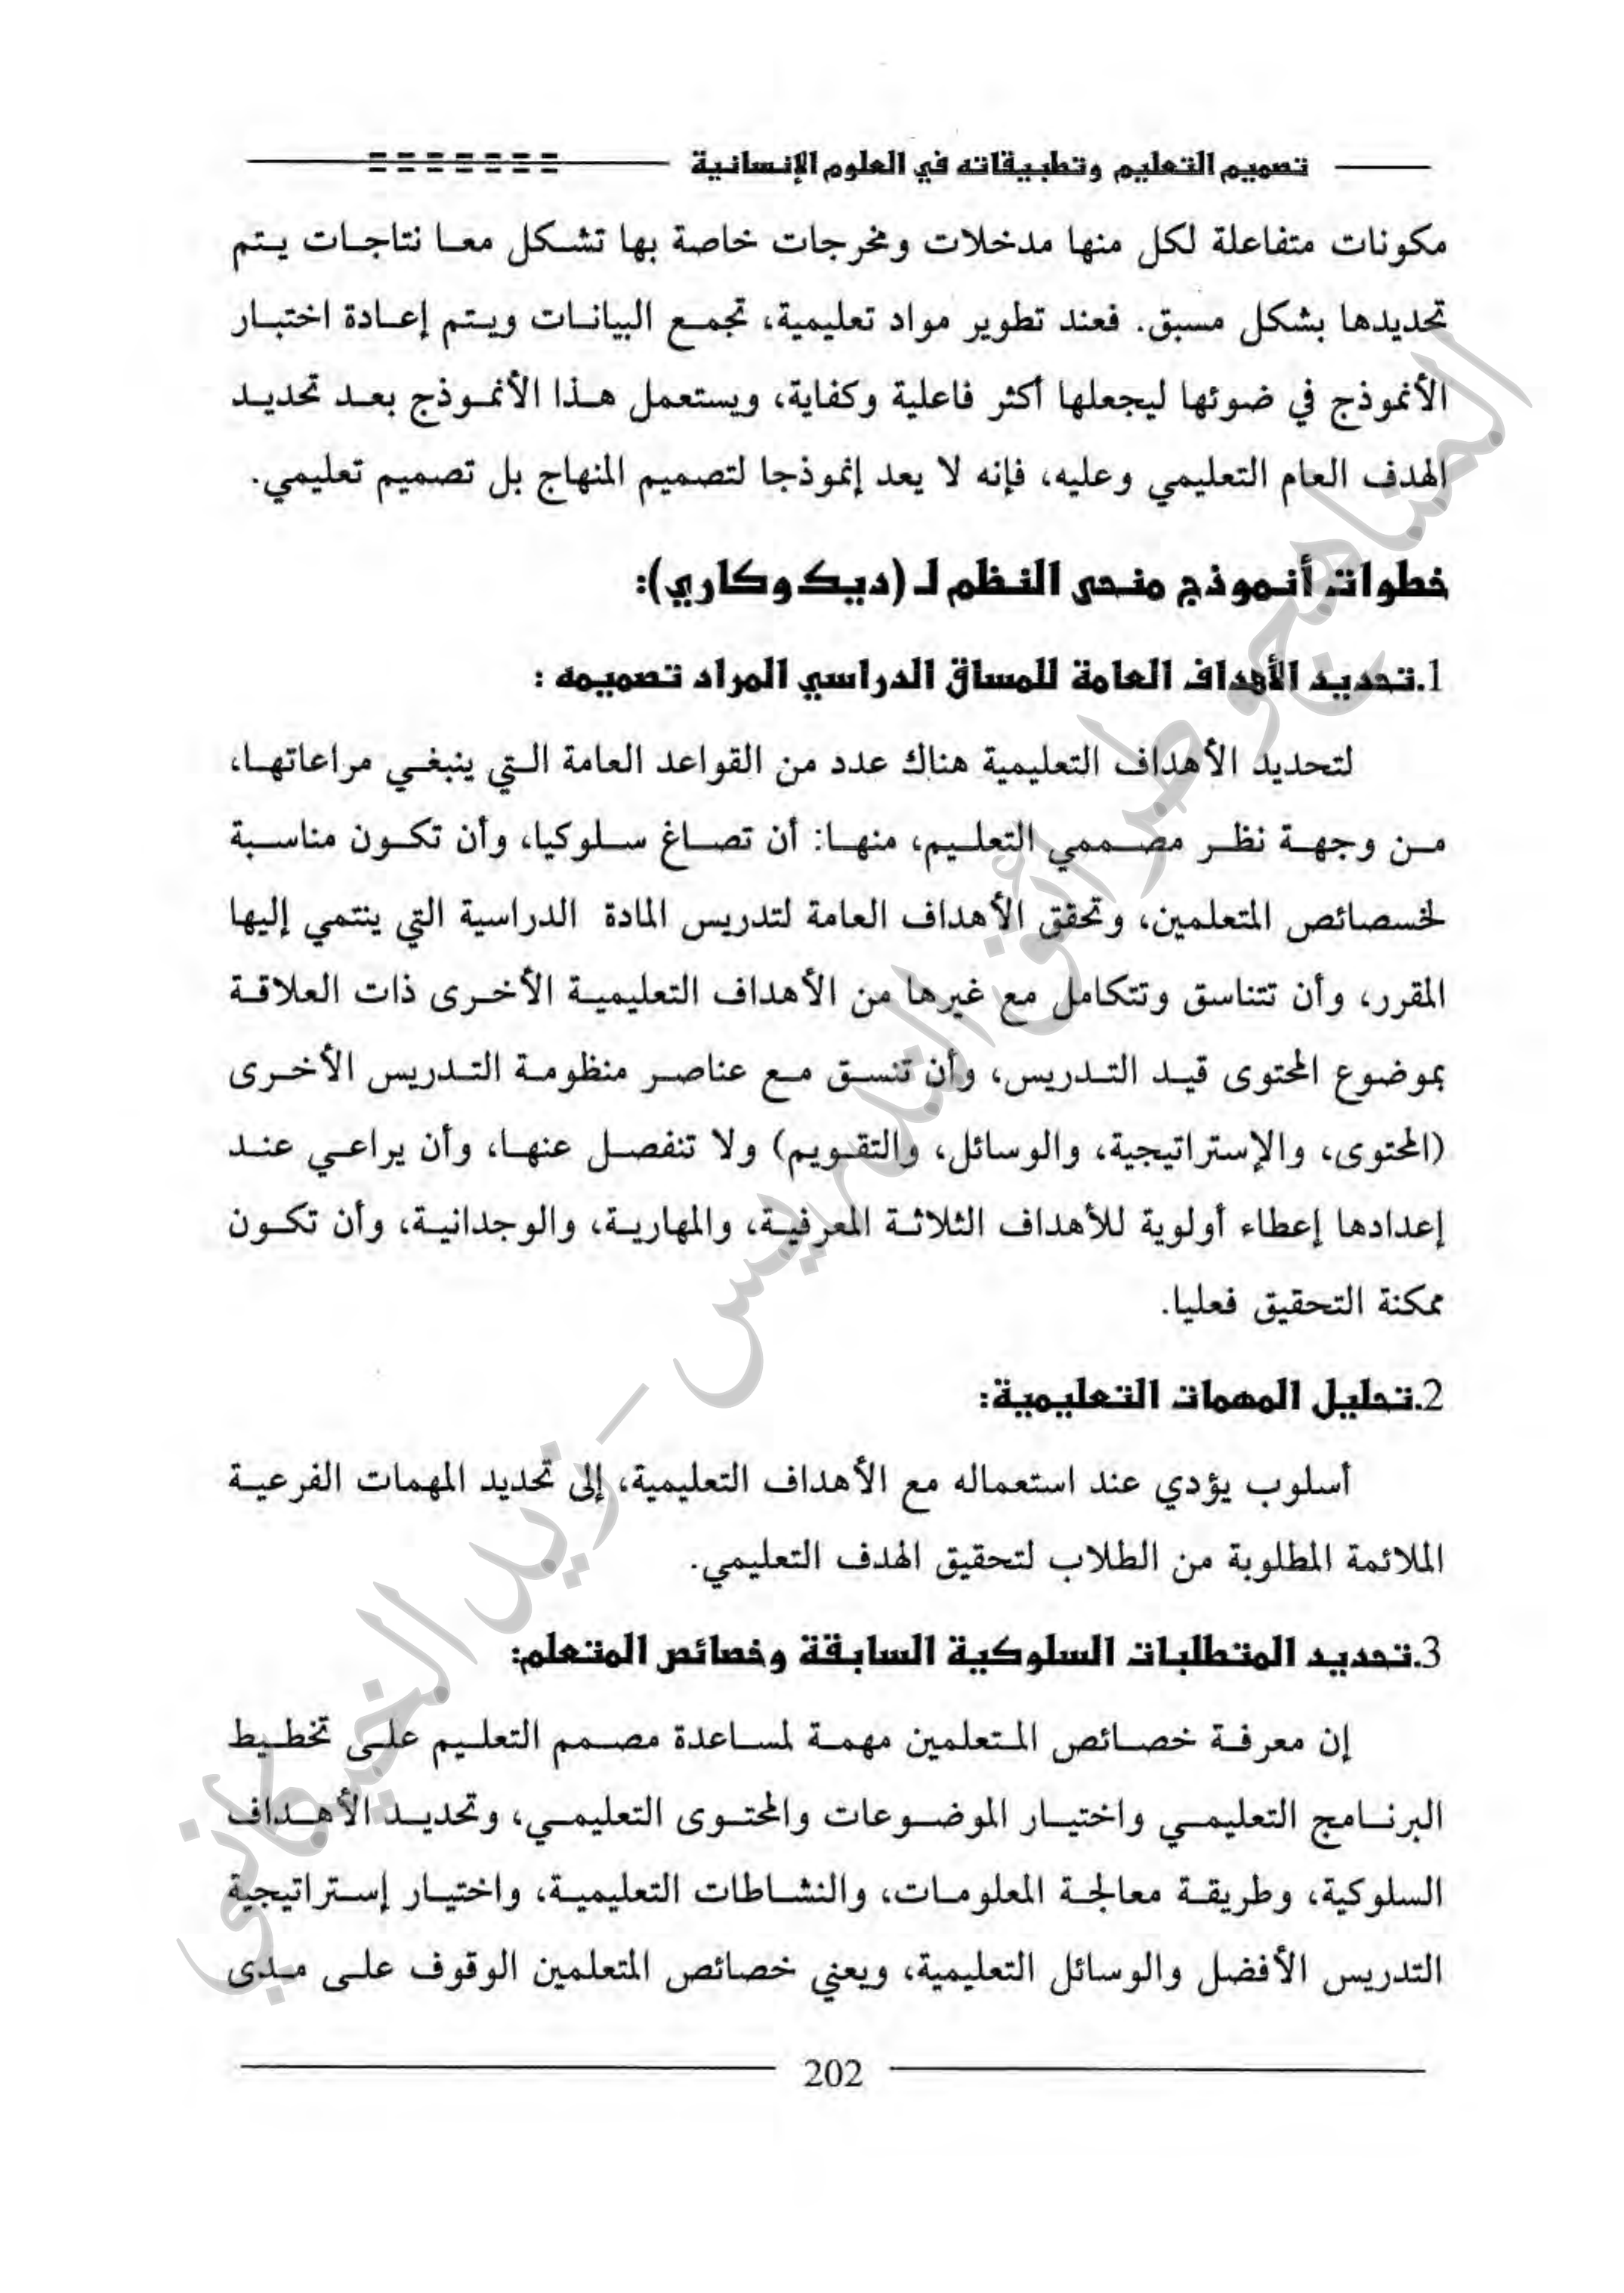 تصميم التعليم وتطبيقاته في العلوم الإنسانية
مكونات متفاعلة لكل منها مدخلات ومخرجات خاصة بها تشكل معا نتاجات يتم
تحديدها بشكل مسبق. فعند تطوير مواد تعليمية، تجمع البيانات ويتم إعادة اختبار
الأنموذج في ضوئها ليجعلها أكثر فاعلية وكفاية، ويستعمل هذا الأنموذج بعد تحديد
الهدف العام التعليمي وعليه، فإنه لا يعد إنموذجا لتصميم المنهاج بل تصميم تعليمي.
خطوات أنموذج منحى النظم لـ (ديك وكاري):
1.تحديد الأهداف العامة للمساق الدراسي المراد تصميمه :
لتحديد الأهداف التعليمية هناك عدد من القواعد العامة التي ينبغي مراعاتها،
من وجهة نظر مصممي التعليم، منها: أن تصاغ سلوكيا، وأن تكون مناسبة
لخسصائص المتعلمين، وتحقق الأهداف العامة لتدريس المادة الدراسية التي ينتمي إليها
المقرر، وأن تتناسق وتتكامل مع غيرها من الأهداف التعليمية الأخرى ذات العلاقة
بموضوع المحتوى قيد التدريس، وأن تنسق مع عناصر منظومة التدريس الأخرى
(المحتوى، والإستراتيجية، والوسائل، والتقويم) ولا تنفصل عنها، وأن يراعي عند
إعدادها إعطاء أولوية للأهداف الثلاثة المعرفية، والمهارية، والوجدانية، وأن تكون
ممكنة التحقيق فعليا.
2.تحليل المهمات التعليمية:
أسلوب يؤدي عند استعماله مع الأهداف التعليمية، إلى تحديد المهمات الفرعية
الملائمة المطلوبة من الطلاب لتحقيق الهدف التعليمي.
3.تحديد المتطلبات السلوكية السابقة وخصائص المتعلم:
إن معرفة خصائص المتعلمين مهمة لمساعدة مصمم التعليم على تخطيط
البرنامج التعليمي واختيار الموضوعات والمحتوى التعليمي، وتحديد الأهداف
السلوكية، وطريقة معالجة المعلومات، والنشاطات التعليمية، واختيار إستراتيجية
التدريس الأفضل والوسائل التعليمية، ويعني خصائص المتعلمين الوقوف على مدى
202
المناهج وطرائق التدريس - زيد الخيكاني